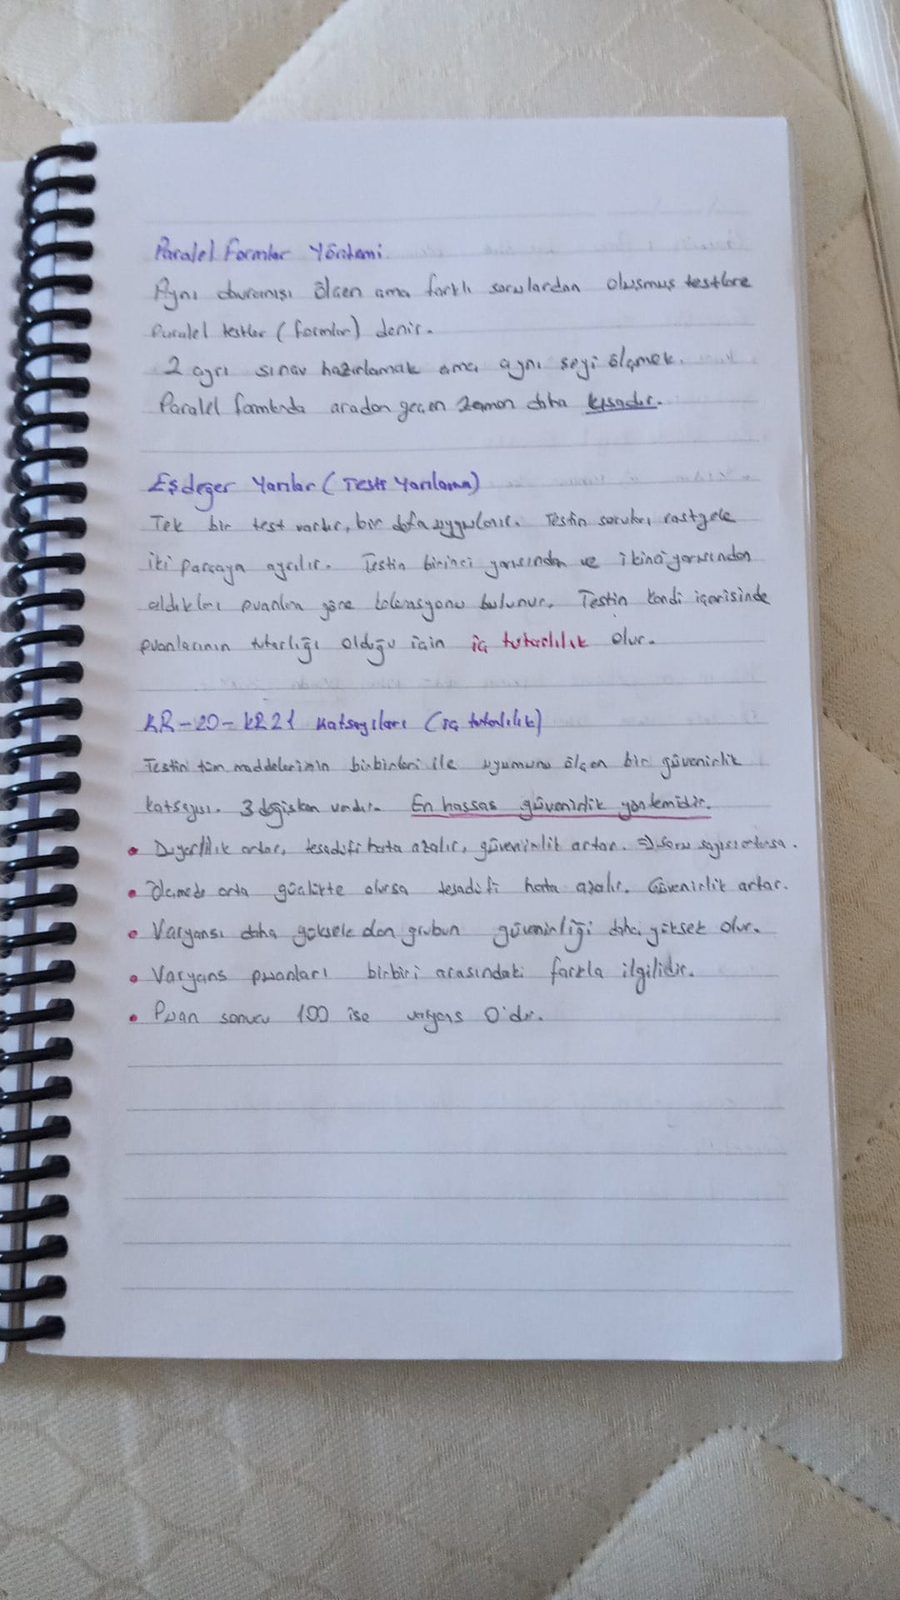 Paralel Formlar Yöntemi
Aynı davranışı ölçen ama farklı sorulardan oluşmuş testlere
paralel testler (formlar) denir.
2 ayrı sınav hazırlamak ama aynı şeyi ölçmek.
Paralel formlarda aradan geçen zaman daha kısadır.
Eşdeğer Yarılar (Testi Yarılama)
Tek bir test vardır, bir defa uygulanır. Testin soruları rastgele
iki parçaya ayrılır. Testin birinci yarısından ve ikinci yarısından
aldıkları puanlara göre korelasyonu bulunur. Testin kendi içerisinde
puanlarının tutarlığı olduğu için iç tutarlılık olur.
KR-20-KR21 Katsayıları (iç tutarlılık)
Testin tüm maddelerinin birbirleri ile uyumunu ölçen bir güvenirlik
katsayısı. 3 değişken vardır. En hassas güvenirlik yöntemidir.
• Duyarlılık artar, tesadüfi hata azalır, güvenirlik artar. => Soru sayısı artarsa.
• orta güçlükte olursa tesadüfi hata azalır. Güvenirlik artar.
• Varyansı daha yüksek olan grubun güvenirliği daha yüksek olur.
• Varyans puanları birbiri arasındaki farkla ilgilidir.
• Puan sonucu 100 ise varyans 0'dır.